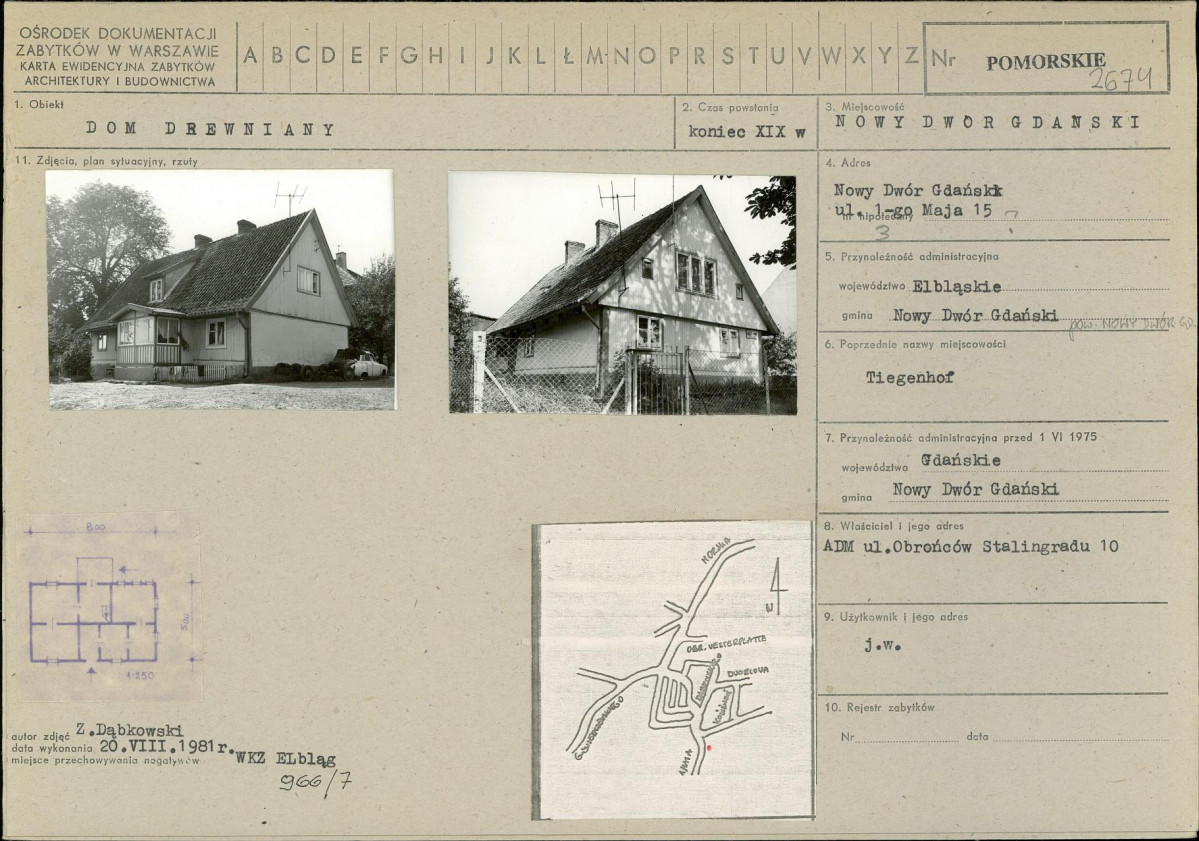 OŚRODEK DOKUMENTACJI
ZABYTKÓW W WARSZAWIE
KARTA EWIDENCYJNA ZABYTKÓW
ARCHITEKTURY I BUDOWNICTWA
A B C D E F G H I J K L Ł M N O P R S T U V W X Y Z
Nr
POMORSKIE
2674
1. Obiekt
DOM DREWNIANY
2. Czas powstania
koniec XIX w
3. Miejscowość
NOWY DWÓR GDAŃSKI
11. Zdjęcia, plan sytuacyjny, rzuty
4. Adres
Nowy Dwór Gdański
ul. 1-go Maja 15 ?
nr hipoteczny
3
5. Przynależność administracyjna
województwo Elbląskie
gmina Nowy Dwór Gdański
pow. NOWY DWÓR GD.
6. Poprzednie nazwy miejscowości
Tiegenhof
7. Przynależność administracyjna przed 1 VI 1975
województwo Gdańskie
gmina Nowy Dwór Gdański
8. Właściciel i jego adres
ADM ul.Obrońców Stalingradu 10
9. Użytkownik i jego adres
j.w.
10. Rejestr zabytków
Nr data
800
500
1:250
OBR. WESTERPLATTE
DWORCOWA
autor zdjęć Z.Dąbkowski
data wykonania 20.VIII.1981r.
miejsce przechowywania negatywów WKZ ELbląg
966/7